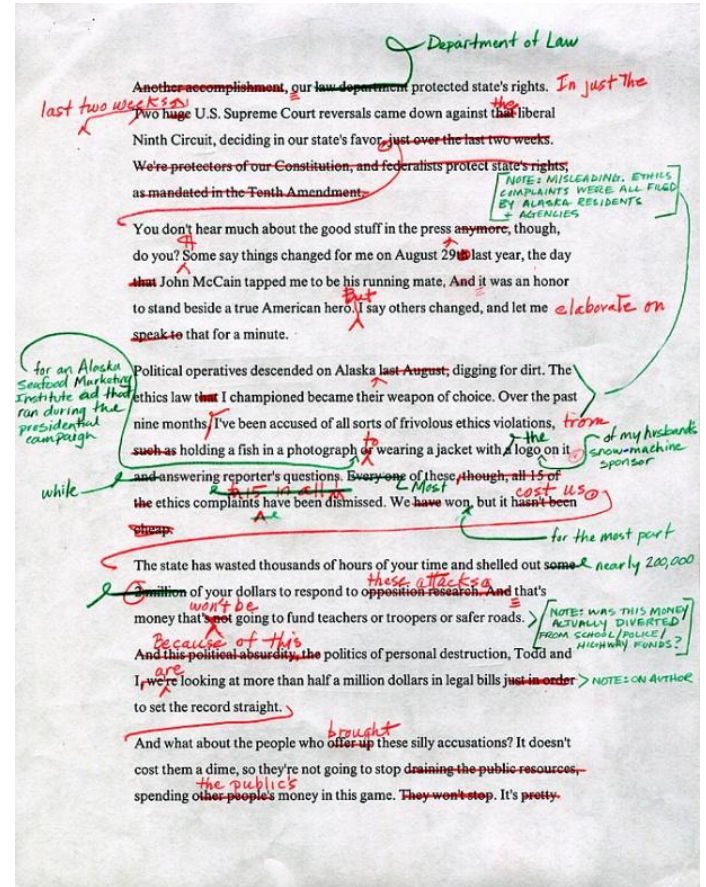 Department of Law
Another accomplishment, our law department protected state's rights. In just the
last two weeks
Two huge U.S. Supreme Court reversals came down against that liberal
the
Ninth Circuit, deciding in our state's favor, just over the last two weeks.
We're protectors of our Constitution, and federalists protect state's rights,
as mandated in the Tenth Amendment.
NOTE: MISLEADING. ETHICS
COMPLAINTS WERE ALL FILED
BY ALASKA RESIDENTS
+ AGENCIES
You don't hear much about the good stuff in the press anymore, though,
do you? Some say things changed for me on August 29th last year, the day
that John McCain tapped me to be his running mate, And it was an honor
But
to stand beside a true American hero. I say others changed, and let me elaborate on
speak to that for a minute.
for an Alaska
Seafood Marketing
Institute ad that
ran during the
presidential
campaign
Political operatives descended on Alaska last August, digging for dirt. The
ethics law that I championed became their weapon of choice. Over the past
nine months, I've been accused of all sorts of frivolous ethics violations, from
to the
such as holding a fish in a photograph or wearing a jacket with a logo on it
of my husband's
snow-machine
sponsor
while
and answering reporter's questions. Every one of these, though, all 15 of
15 in all Most cost us
the ethics complaints have been dismissed. We have won, but it hasn't been
cheap.
for the most part
The state has wasted thousands of hours of your time and shelled out some nearly 200,000
these attacks
2 million of your dollars to respond to opposition research. And that's
won't be
money that's not going to fund teachers or troopers or safer roads.
NOTE: WAS THIS MONEY
ACTUALLY DIVERTED
FROM SCHOOL/POLICE/
HIGHWAY FUNDS?
Because of this
And this political absurdity, the politics of personal destruction, Todd and
are
I, we're looking at more than half a million dollars in legal bills just in order
NOTE: ON AUTHOR
to set the record straight.
brought
And what about the people who offer up these silly accusations? It doesn't
cost them a dime, so they're not going to stop draining the public resources,
the public's
spending other people's money in this game. They won't stop. It's pretty.